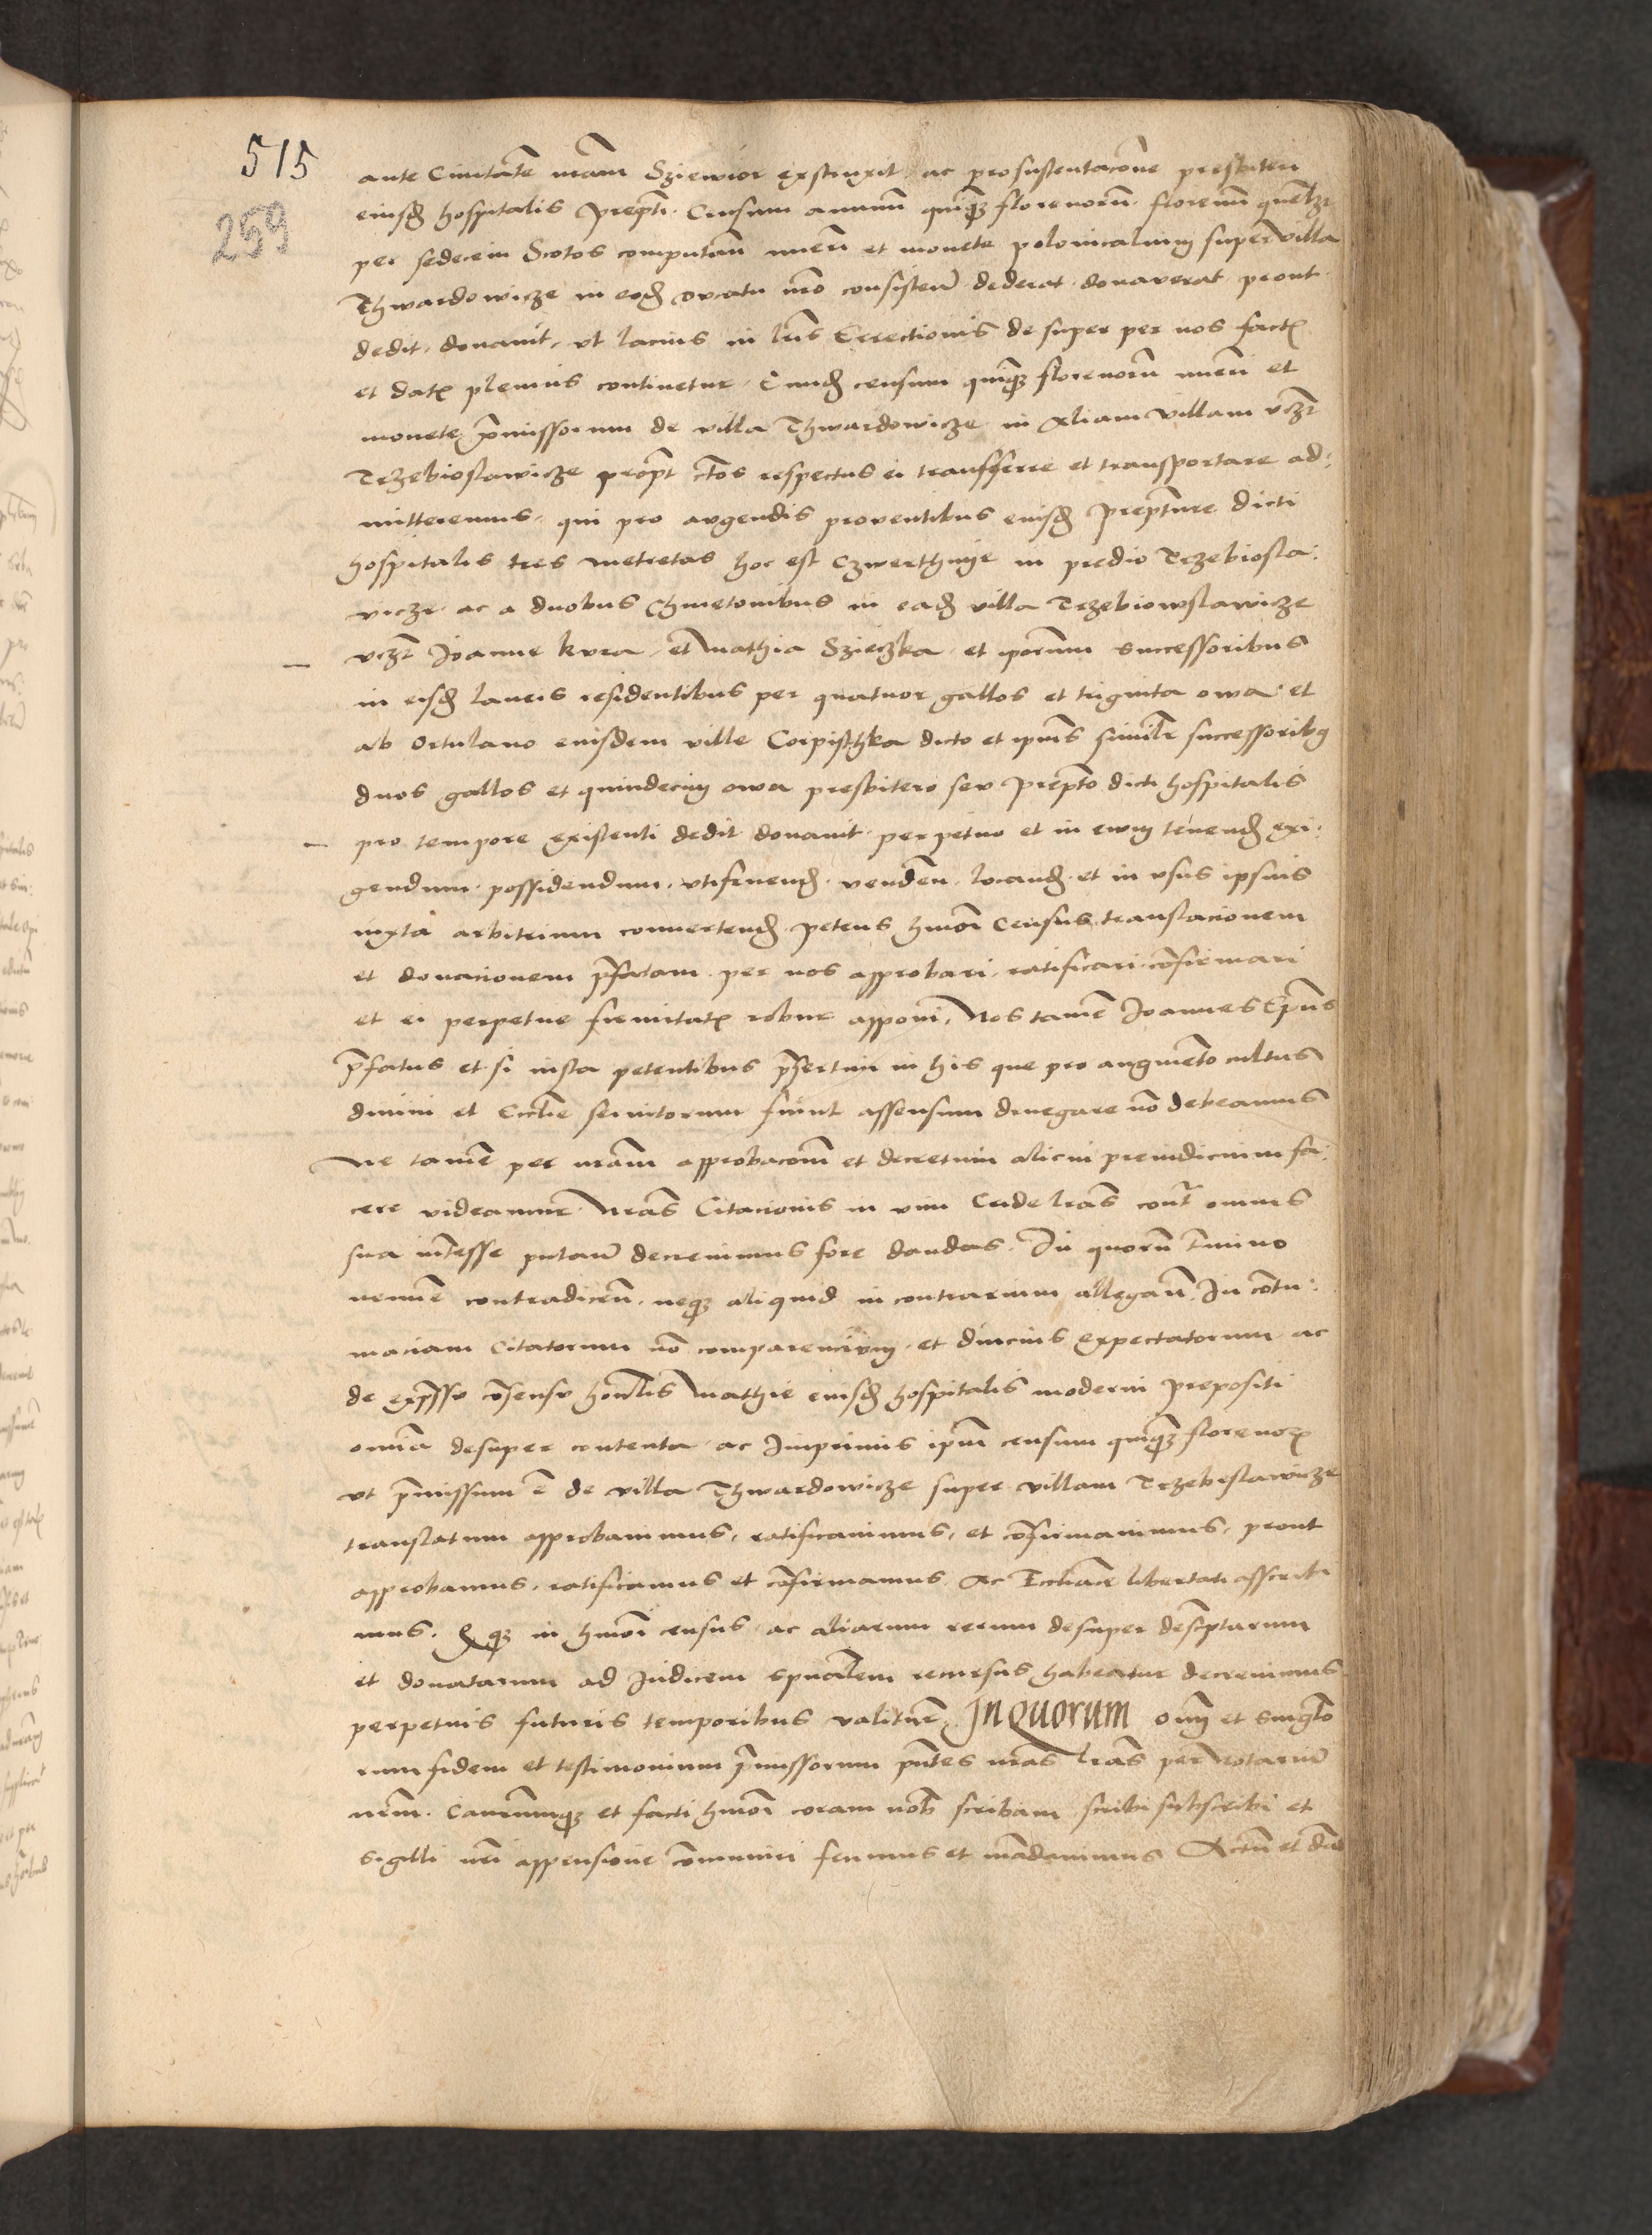 515
259
ante Civitatẽ nrãm Sziewior exstruxit ac pro sustentacõne presbiteri
eiusd̃ hospitalis Prepti. Censum annuũ quinq̃ florenorũ. florenũ quẽlbꝫ
per sedecim Scotos computañ nueri et monete polonicalium super villa
Thwardowicze in eod̃ Ducatu nr̃o consisteñ dederat donaverat prout
dedit, donavit, ut lacius in lr̃is Erectionis de super per nos fact̃
et dat̃ plenius continetur, Eund̃ censum quinq̃ florenorũ nueri et
monete p̃missorum de villa Thwardowicze in aliam villam vcꝫ
Trzebioslawicze propt̃ cr̃tos respectus ei transfferre et transportare ad:
mitteremus, qui pro augendis proventibus eiusd̃ prepture dicti
hospitalis tres metretas hoc est Czwerthnye in predio Trzebiosla:
vicze ac a duobus Chmetonibus in ead̃ villa Trzebiowslawicze
vcꝫ Joanne kura, et Mathia Szieczka, et ipõrum successoribus
in eisd̃ laneis residentibus per quatuor gallos et triginta owa et
ab Ortulano eiusdem ville Corpisthka dicto et ipius similr̃ successoribꝰ
duos gallos et quindecim owa presbitero seu prepto dicti hospitalis
pro tempore existenti dedit donavit perpetuo et in ewum tenend̃ exi:
gendum, possidendum, utifruend̃, vendeñ, locand̃, et in usus ipsius
iuxta arbitrium convertend̃ petens hmõi Census translacionem
et donacionem p̃fatam per nos approbari, ratificari, cõfirmari
et ei perpetue firmitat̃ robur apponi, Nos tamẽ Joannes Ep̃us
p̃fatus et si iusta petentibus p̃sertim in his que pro augmẽto cultus
divini et Ecclie servitorum fiunt assensum denegare nõ debeamus
Ne tamẽ per nrãm approbacom̃ et decretum alicui preiudicium fa:
cere videamur Nrãs Citacionis in vim Cride lrãs cont̃ omnes
sua intẽsse putañ decrevimus fore dandas. In quorũ t̃mino
nemiẽ contradiceñ, neq̃ aliquid in contrarium allegañ. In cõtu:
maciam Citatorum nõ comparencium et diucius expectatorum ac
de exp̃sso cõsensu honlis Mathie eiusd̃ hospitalis moderni prepositi
omnia desuper contenta ac Imprimis ipm̃ censum quinq̃ florenoꝝ
ut p̃missum ẽ de villa Thwardowicze super villam Trzebislawicze
translatum approbavimus, ratificavimus, et cõfirmavimus, prout
approbamus, ratificamus et cõfirmamus Ac Eccliãce libertati asscribi
mus. Et q̃ in hmõi census ac aliarum rerum desuper descptarum
et donatarum ad Judicem spualem recursus habeatur decrevimus
perpetuis futuris temporibus valitur̃. In Quorum om̃ et singlo
rum fidem et testimonium p̃missorum pñtes nrãs lrãs per Notariũ
nrm̃. Caurumq̃ et facti hmõi coram nob̃ scribam scribi subscribi et
sigilli nr̃i appensione cõmuniri fecimus et mãdavimus Actũ et dat̃